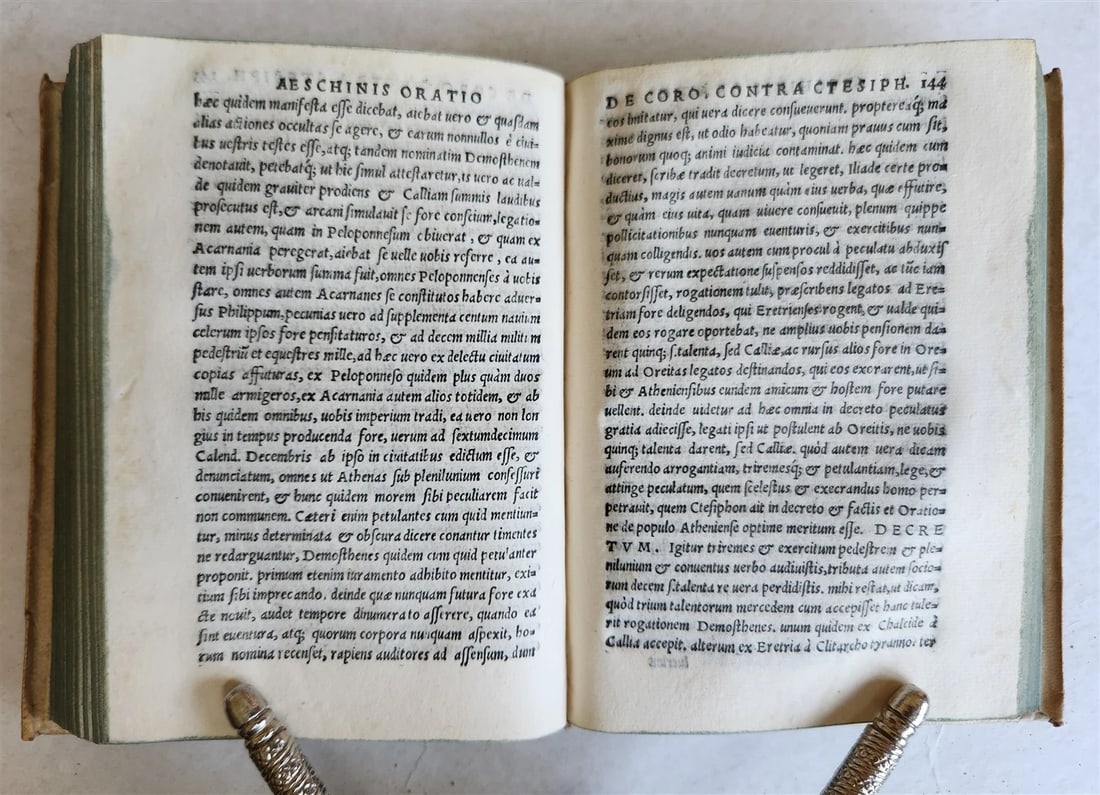 AESCHINIS ORATIO
hæc quidem manifesta esse dicebat, aiebat uero & quasdam
alias actiones occultas se agere, & earum nonnullos è ciui-
tus uestris testes esse, atq; tandem nominatim Demosthenem
denotauit, petebatq́; ut hic simul attestaretur, is uero ac ual-
de quidem grauiter prodiens & Calliam summis laudibus
prosecutus est, & arcani simulauit se fore conscium, legatio-
nem autem, quam in Peloponnesum obiuerat, & quam ex
Acarnania peregerat, aiebat se uelle uobis referre, ea au-
tem ipsi uerborum summa fuit, omnes Peloponnenses à uobis
stare, omnes autem Acarnanes se constitutos habere aduer-
sus Philippum, pecunias uero ad supplementa centum nauium
celerum ipsos fore pensitaturos, & ad decem millia militum
pedestriũ et equestres mille, ad hæc uero ex delectu ciuitatum
copias affuturas, ex Peloponneso quidem plus quàm duos
mille armigeros, ex Acarnania autem alios totidem, & ab
his quidem omnibus, uobis imperium tradi, ea uero non lon
gius in tempus producenda fore, uerum ad sextumdecimum
Calend. Decembris ab ipso in ciuitatibus edictum esse, &
denunciatum, omnes ut Athenas sub plenilunium consessuri
conuenirent, & hunc quidem morem sibi peculiarem facit
non communem. Cæteri enim petulantes cum quid mentiun-
tur, minus determinata & obscura dicere conantur timentes
ne redarguantur, Demosthenes quidem cum quid petulanter
proponit. primum etenim iuramento adhibito mentitur, exi-
tium sibi imprecando. deinde quæ nunquam futura fore exa
cte nouit, audet tempore dinumerato asserere, quando ea
sint euentura, atq; quorum corpora nunquam aspexit, ho-
rum nomina recenset, rapiens auditores ad assensum, dum
DE CORO. CONTRA CTESIPH. 144
eos imitatur, qui uera dicere consueuerunt. proptereaq́; ma
xime dignus est, ut odio habeatur, quoniam prauus cum sit,
bonorum quoq; animi iudicia contaminat. hæc quidem cum
diceret, scribæ tradit decretum, ut legeret, Iliade certe pro-
ductius, magis autem uanum quàm eius uerba, quæ effutire,
& quàm eius uita, quam uiuere consueuit, plenum quippe
pollicitationibus nunquam euenturis, & exercitibus nun-
quam colligendis. uos autem cum procul à peculatu abduxis
set, & rerum expectatione suspensos reddidisset, ac tũc iam
contorsisset, rogationem tulit, præscribens legatos ad Ere-
triam fore deligendos, qui Eretrienses rogent, & ualde qui-
dem eos rogare oportebat, ne amplius uobis pensionem da-
rent quinq; s. talenta, sed Calliæ, ac rursus alios fore in Ore-
um ad Oreitas legatos destinandos, qui eos exorarent, ut si-
bi & Atheniensibus eundem amicum & hostem fore putare
uellent. deinde uidetur ad hæc omnia in decreto peculatus
gratia adiecisse, legati ipsi ut postulent ab Oreitis, ne uobis
quinq; talenta darent, sed Calliæ. quòd autem uera dicam
auferendo arrogantiam, triremesq́; & petulantiam, lege, &
attinge peculatum, quem scelestus & execrandus homo per-
petrauit, quem Ctesiphon ait in decreto & factis et Oratio-
ne de populo Atheniense optime meritum esse. DECRE
TVM. Igitur triremes & exercitum pedestrem & ple-
nilunium & conuentus uerbo audiuistis, tributa autem socio-
rum decem s. talenta re uera perdidistis. mihi restat, ut dicam,
quòd trium talentorum mercedem cum accepisset hanc tule-
rit rogationem Demosthenes. unum quidem ex Chalcide à
Callia accepit. alterum ex Eretria à Clitarcho tyranno: ter